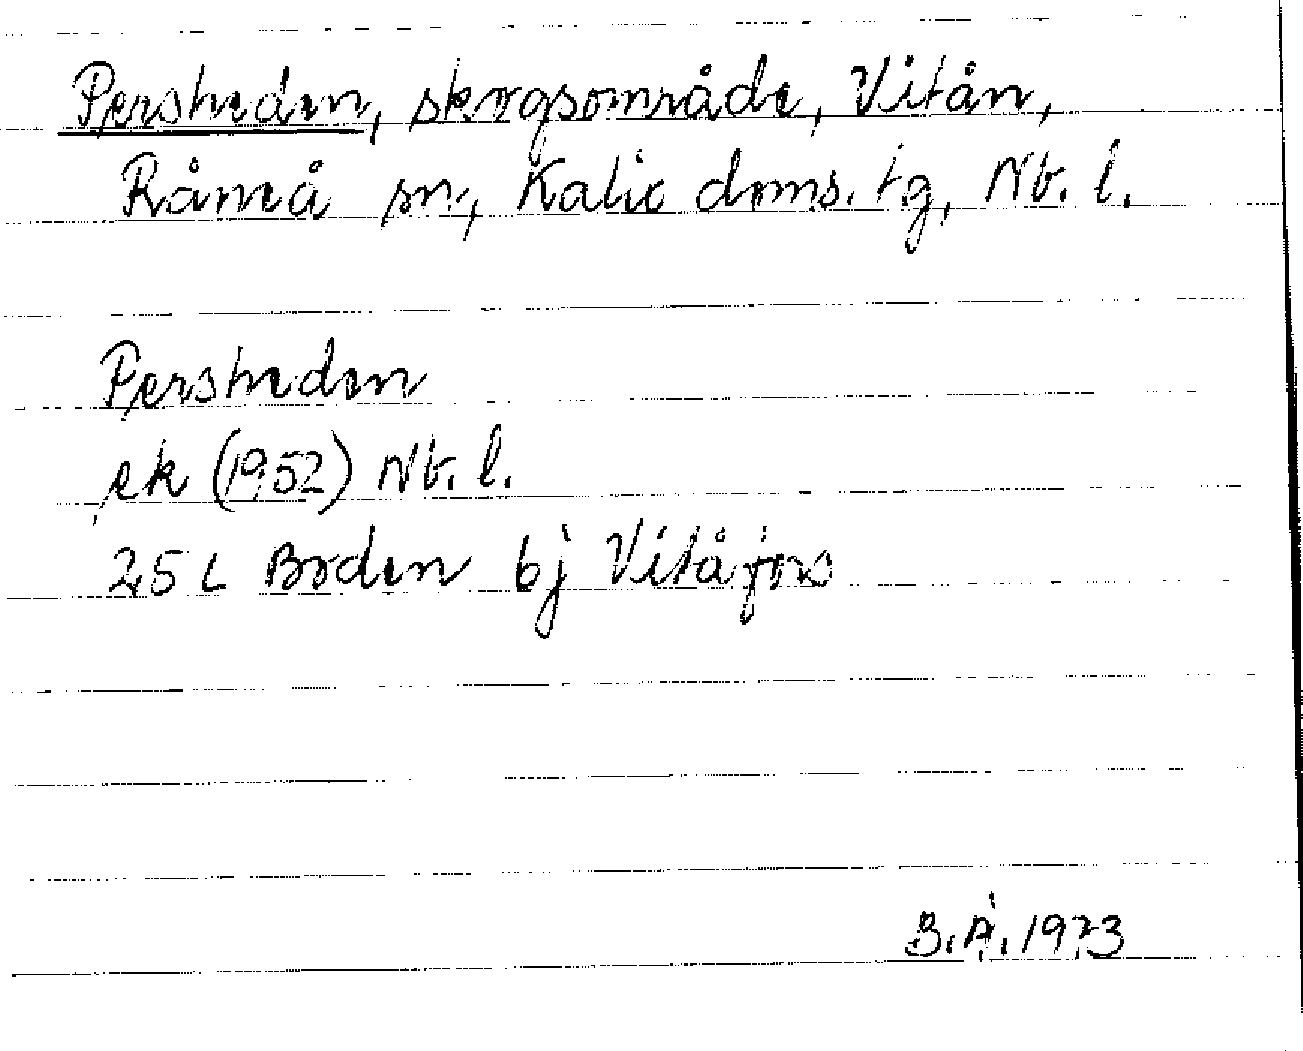 Persheden, skogsområde, Vitån,
Råneå sn, Kalix doms. tg, Nb. l.
Persheden
ek (1952) Nb. l.
25 L Boden bj Vitåfors
B.Å. 1973